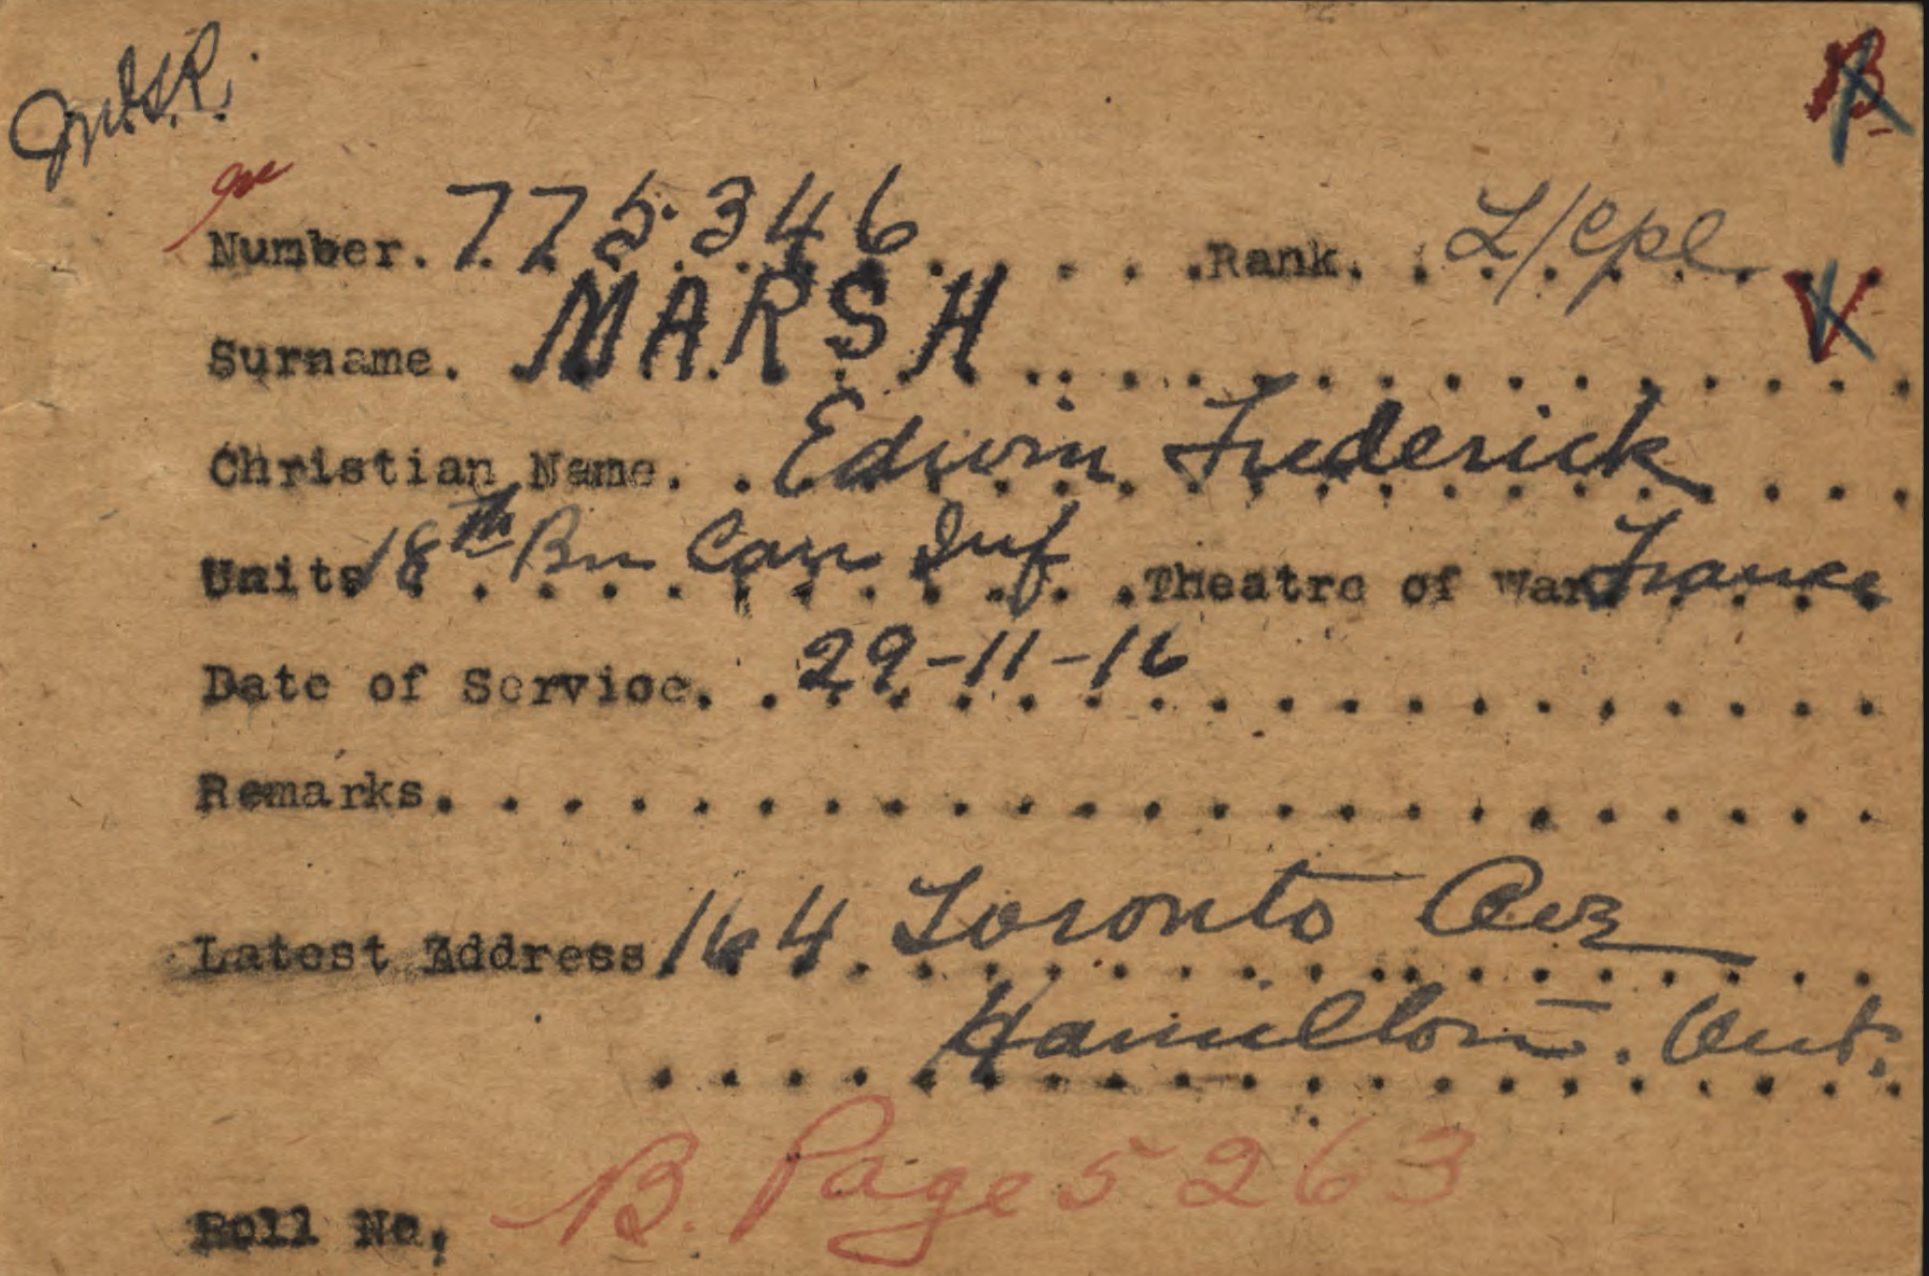 B
Number. 775346 Rank. L/Cpl
V
Surname. MARSH
Christian Name. Edwin Frederick
Units 18th Bn Can Inf Theatre of War France
Date of Service. 29-11-16
Remarks.
Latest Address 164 Toronto Ave
Hamilton. Ont.
Roll No. B. Page 5263